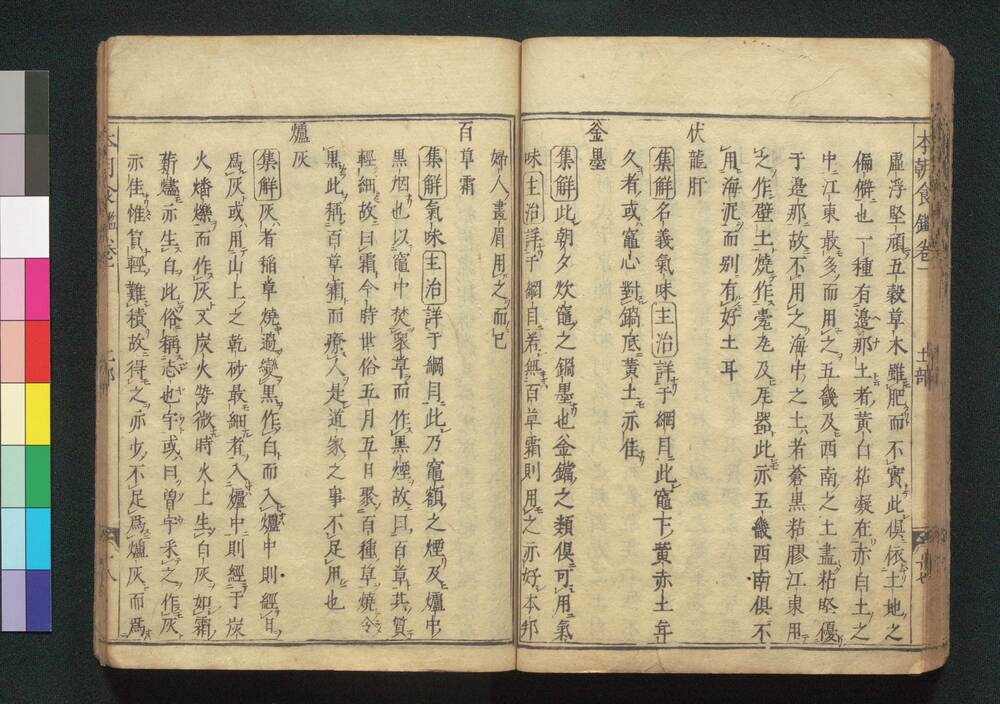 本朝食鑑卷一 土部
虛浮堅頑五穀草木雖肥而不實此俱依土地之
偏僻也一種有邉那土者黃白粘凝在赤白土之
中江東最多而用之五畿及西南之土盡粘堅優
于邉那故不用之海中之土者蒼黑粘膠江東用
之作壁土燒作甍瓦及瓦器此亦五畿西南俱不
用海泥而别有好土耳
伏龍肝
集解名義氣味主治詳于綱目此竈下黃赤土年
久者或竈心對鍋底黃土亦佳
釜墨
集解此朝夕炊竈之鍋墨也金鐺之類俱可用氣
味主治詳于綱目若無百草霜則用之亦好本邦
婦人畫眉用之而已
百草霜
集解氣味主治詳于綱目此乃竈額之煙及爐中
黑烟也以竈中焚衆草而作黑煙故曰百草其質
輕細故曰霜今時世俗五月五日聚百種草燒令
黑此稱百草霜而療人是道家之事不足用也
爐灰
集解灰者稲草燒過變黑作白而入爐中則經日
爲灰或用山上之乾砂最細者入爐中則經于炭
火燔爍而作灰又炭火勢微時火上生白灰如霜
薪燼亦生白此俗稱志也宇或曰曽宇采之作灰
亦佳惟質輕難積故得之亦少不足爲爐灰而爲
本朝食鑑卷一 土部 十八